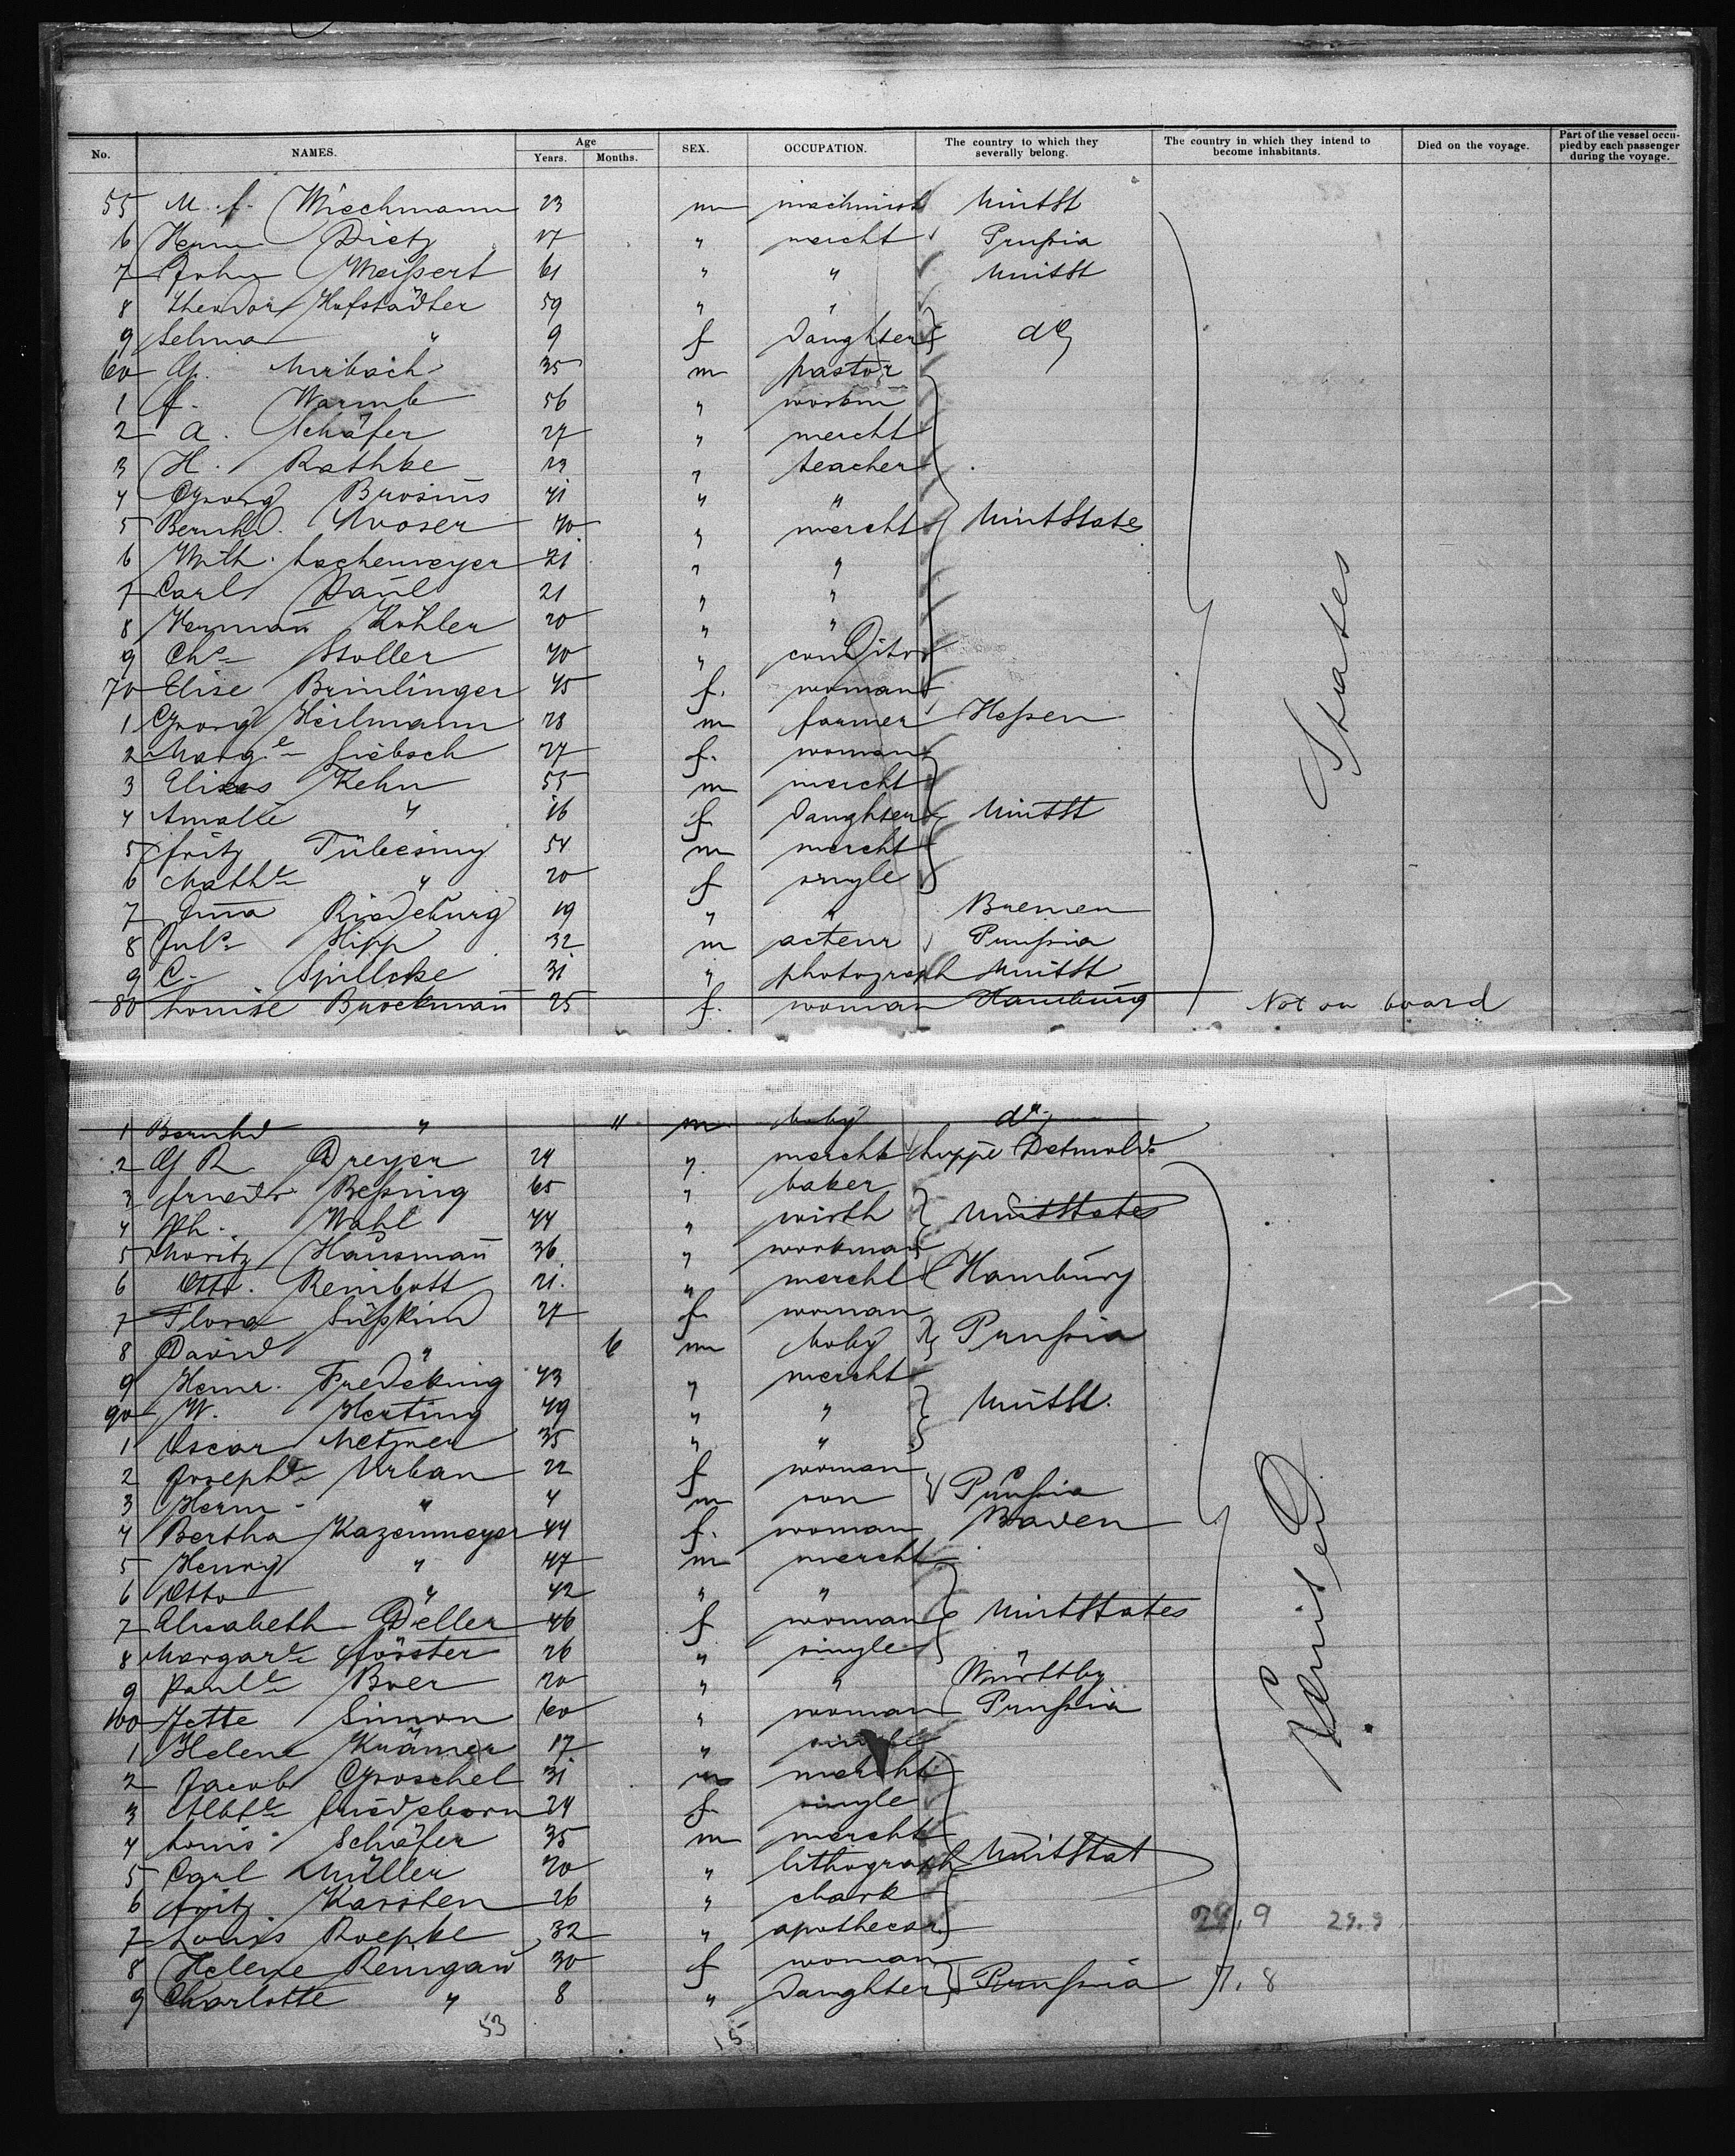 No. NAMES. Age Years. Months. SEX. OCCUPATION. The country to which they severally belong. The country in which they intend to become inhabitants. Died on the voyage. Part of the vessel occupied by each passenger during the voyage.
55 M. f. Wischmann 23 m machinist UnitSt
6 Herm Dietz 17 " mercht Prußia
7 John Meißert 61 " " UnitSt
8 Theodor Hofstädter 59 " "
9 Selma " 9 f Daughter do
60 G. Mirbach 35 m pastor
1 f. Warmb 56 " workm
2 A. Schäfer 27 " mercht
3 H. Rathke 23 " teacher
4 Georg Brosius 41 " "
5 Bernhd. Moser 40 " mercht UnitStates
6 Wilh. Lachemeyer 21 " "
7 Carl Paul 21 " "
8 Herman Köhler 20 " "
9 Chs Stoller 40 " conditor
70 Elise Brinlinger 45 f. woman
1 Georg Heilmann 28 m farmer Heßen
2 Marge Liebsch 27 f. woman
3 Elias Kehn 55 m mercht
4 Amalie " 16 f Daughter UnitSt
5 fritz Tübesing 54 m mercht
6 Mathe " 20 f single
7 Anna Riedeburg 19 " " Bremen
8 Juls Hipp 32 m acteur Prußia
9 C. Spillcke 31 " photograph UnitSt
80 Louise Brockman 25 f. woman Hamburg Not on board
States
1 Bernhd " 11 m baby do
2 G R Dreyer 24 " mercht Lippe Detmold
3 friedr Beßing 65 " baker
4 Ph. Wahl 44 " wirth UnitStates
5 Moritz Hausman 36 " workman
6 Otto. Reinbott 21. " mercht Hamburg
7 Flora Süßkind 27 f woman
8 David " 6 m baby Prußia
9 Henr. Fredeking 43 " mercht
90 W. Herting 49 " " UnitSt.
1 Oscar Metzner 35 " "
2 Josephe Urban 22 f woman
3 Herm " 4 m son Prußia
4 Bertha Kazenmeyer 44 f. woman Baden
5 Henry " 47 m mercht
6 Otto " 42 " "
7 Elisabeth Deller 46 f woman UnitStates
8 Margare förster 26 " single
9 Paule Baer 20 " " Württbg
100 Jette Simon 60 " woman Prußia
1 Helene Krämer 17 " single
2 Jacob Groschel 31 m mercht
3 Albte friedeborn 24 f single
4 Louis Schäfer 35 m mercht
5 Carl Müller 20 " lithograph UnitStat
6 fritz Karsten 26 " clark
7 Louis Roepke 32 " apothecar 29.9 29.9
8 Helene Remgau 30 f woman
9 Charlotte " 8 " Daughter Prußia 7.8
United
53 15